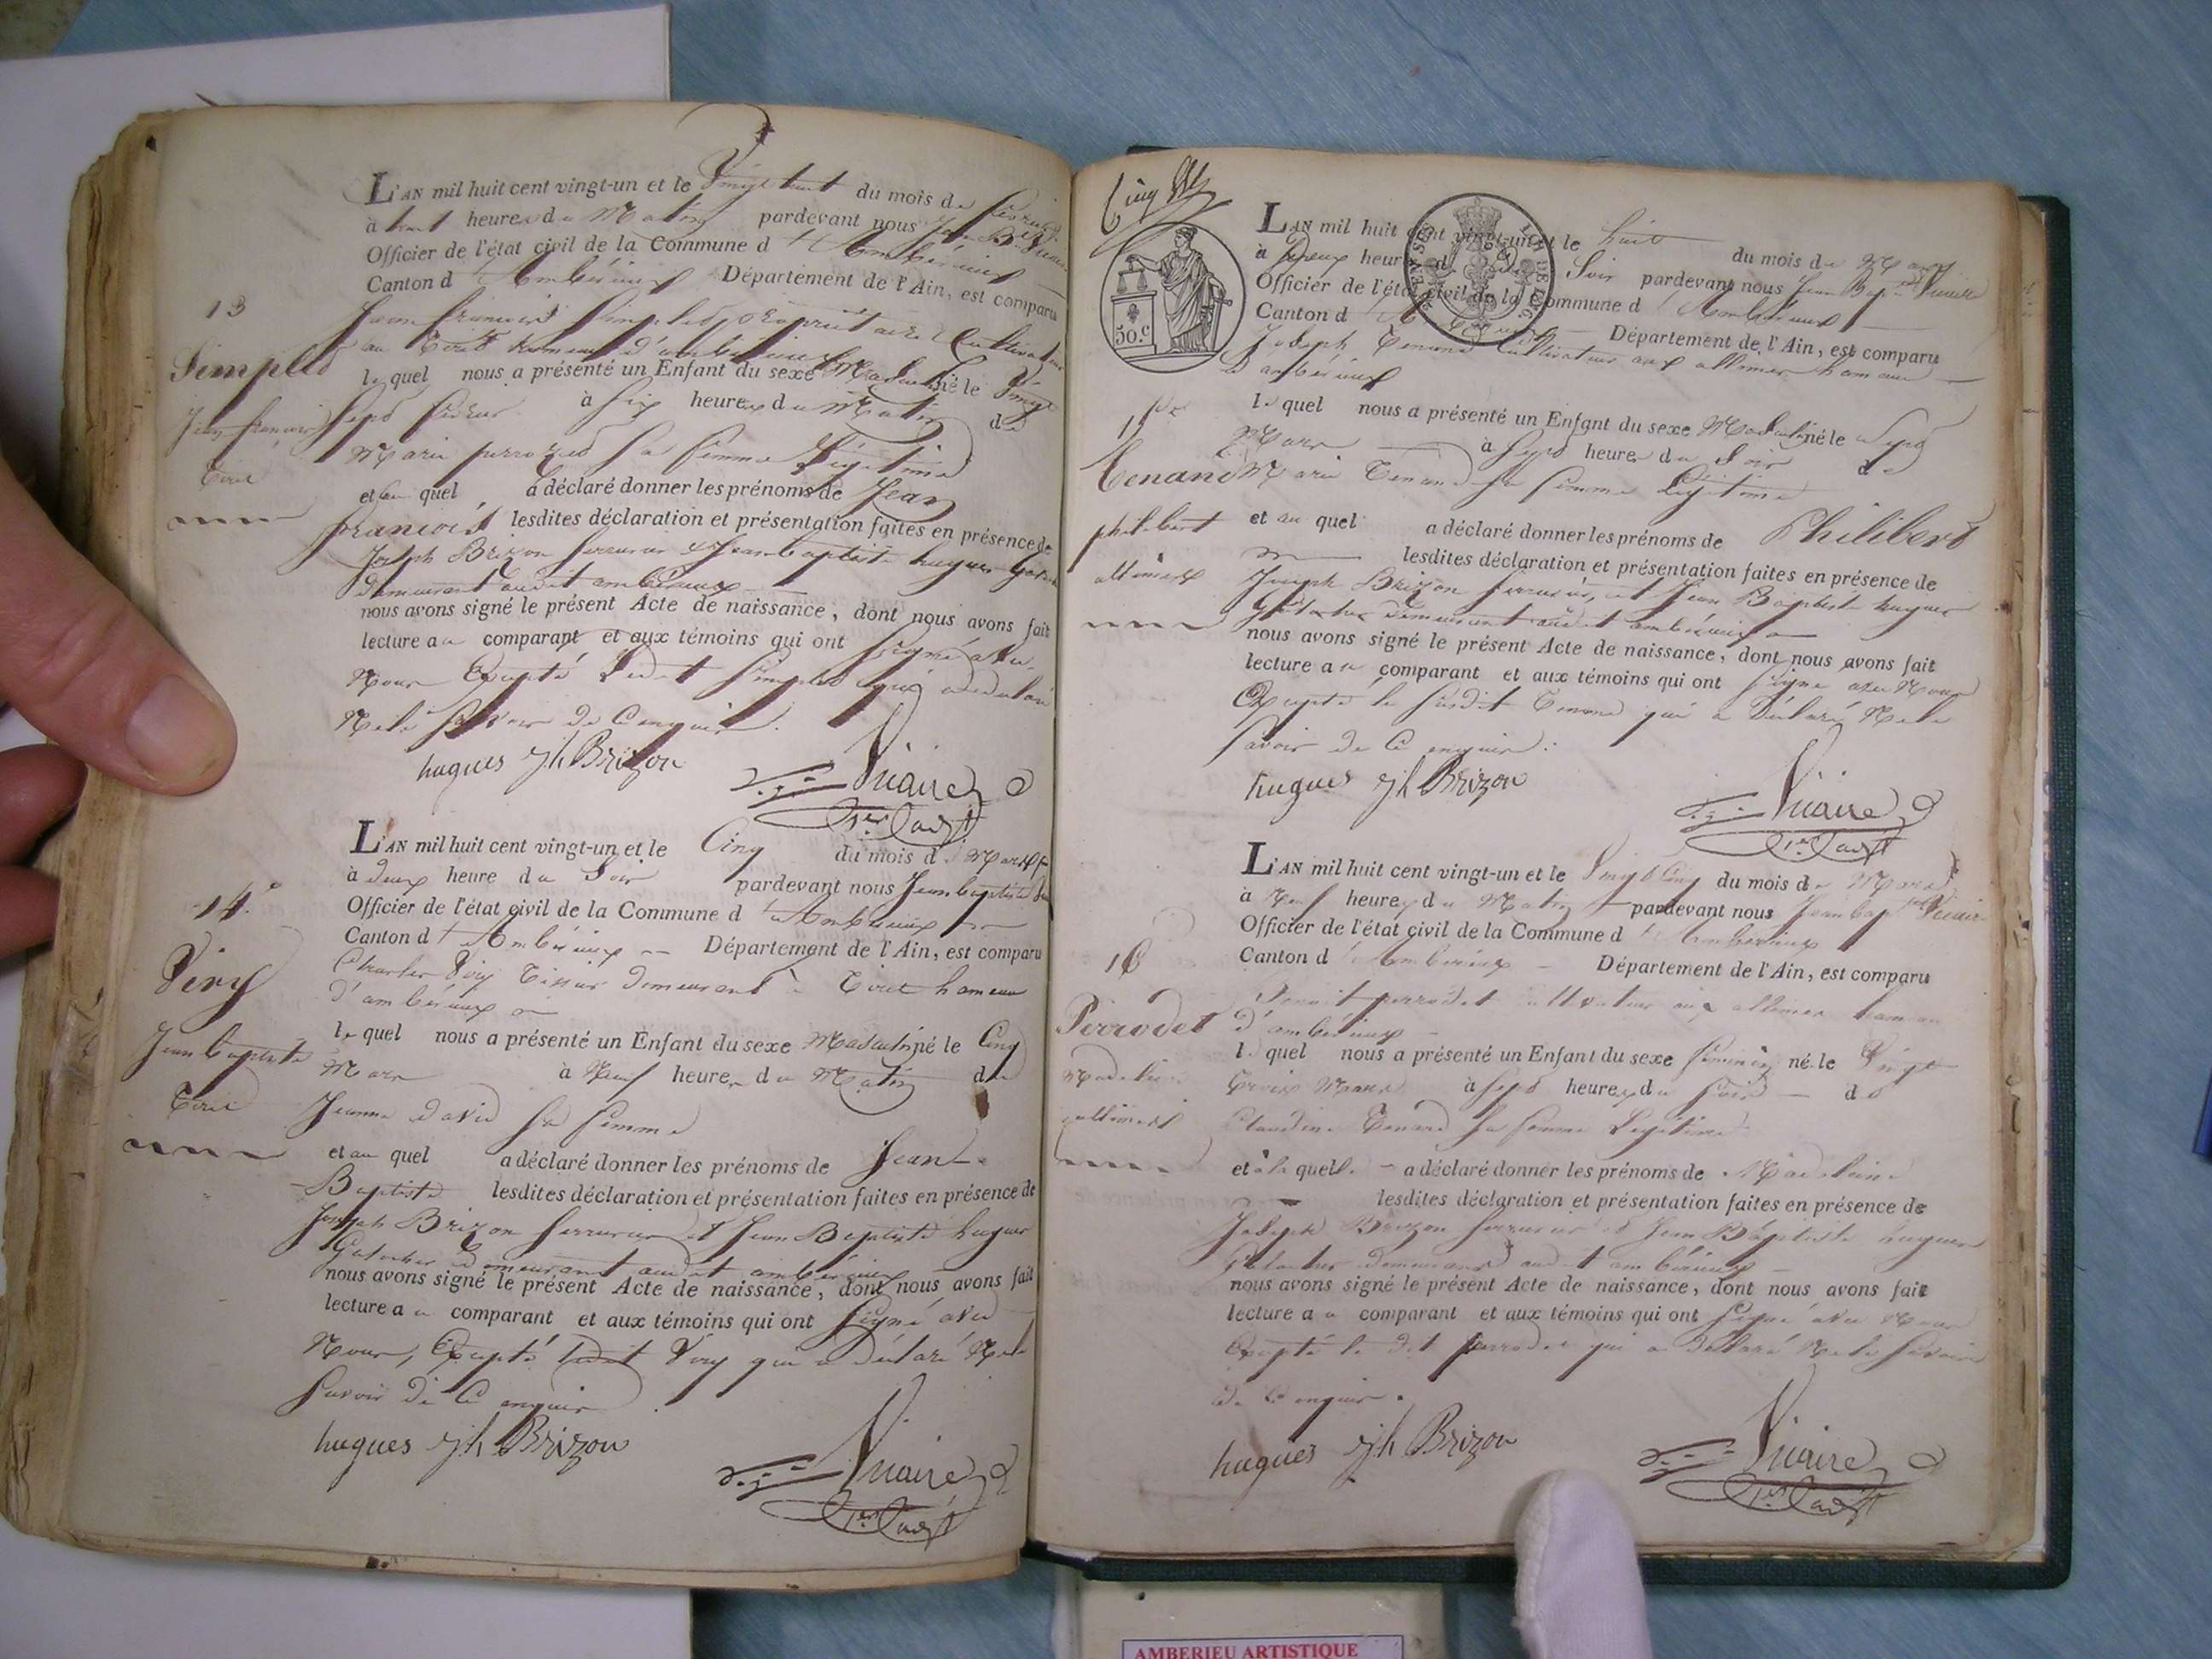 L'AN mil huit cent vingt-un et le Vingt huit du mois de fevrier
à huit heures du Matin pardevant nous Jean Bte Vicaire
Officier de l'état civil de la Commune d'Ambérieux
Canton d'Ambérieux Département de l'Ain, est comparu
13
Jean françois Simplet propriétaire Cultivateur
au Tiret hameau d'ambérieux
Simplet
lequel nous a présenté un Enfant du sexe Masculin né le Vingt
Jean françois
Sept fevrier à Six heures du Matin de
Tiret
Marie perrozet Sa femme Légitime
et au quel a déclaré donner les prénoms de Jean
francois lesdites déclaration et présentation faites en présence de
Joseph Brizon Serrurier et Jean baptiste hugues
demeurant audit ambérieux
nous avons signé le présent Acte de naissance, dont nous avons fait
lecture au comparant et aux témoins qui ont Signé avec
Nous Excepté Ledit Simplet qui a declaré
Ne le Savoir de Ce enquis.
hugues jh Brizon Vicaire
1er adjt
L'AN mil huit cent vingt-un et le Cinq du mois de Mars
à deux heure du Soir pardevant nous Jean baptiste
Officier de l'état civil de la Commune d'Ambérieux
14.
Canton d'Ambérieux Département de l'Ain, est comparu
Viry
Charles Viry Tissier demeurant à Tiret hameau
d'ambérieux
lequel nous a présenté un Enfant du sexe Masculin né le Cinq
Jean baptiste
Mars à Neuf heures du Matin de
Tiret
Jeanne david Sa femme
et au quel a déclaré donner les prénoms de Jean
Baptiste lesdites déclaration et présentation faites en présence de
Joseph Brizon Serrurier et Jean Baptiste hugues
demeurant audit ambérieux
nous avons signé le présent Acte de naissance, dont nous avons fait
lecture au comparant et aux témoins qui ont Signé avec
Nous, Excepté Ledit Viry qui a déclaré Ne le
Savoir de Ce enquis.
hugues jh Brizon Vicaire
1er adjt
50.c
L'AN mil huit cent vingt-un et le huit du mois de Mars
à Deux heures du Soir pardevant nous Jean Bapte Vicaire
Officier de l'état civil de la Commune d'Ambérieux
Canton d'Ambérieux Département de l'Ain, est comparu
Joseph Tenand Cultivateur aux allimes hameau
D'ambérieux
15
lequel nous a présenté un Enfant du sexe Masculin né le Sept
Mars à Sept heures du Soir de
Tenand
Marie Tenand Sa femme Légitime
philibert
et au quel a déclaré donner les prénoms de Philibert
lesdites déclaration et présentation faites en présence de
allimes
Joseph Brizon Serrurier, et Jean Baptiste hugues
demeurant audit ambérieux
nous avons signé le présent Acte de naissance, dont nous avons fait
lecture au comparant et aux témoins qui ont Signé avec Nous
Excepté le Susdit Tenand qui a Déclaré Ne le
Savoir de Ce enquis.
hugues jh Brizon Vicaire
1er adjt
L'AN mil huit cent vingt-un et le Vingt Cinq du mois de Mars
à Neuf heures du Matin pardevant nous Jean bapte Vicaire
Officier de l'état civil de la Commune d'Ambérieux
16
Canton d'Ambérieux Département de l'Ain, est comparu
Benoit perrodet Cultivateur aux allimes hameau
Perrodet
d'ambérieux
lequel nous a présenté un Enfant du sexe féminin né le Vingt
Madelaine
trois Mars à Sept heures du Soir de
allimes
Claudine Tenand Sa femme Legitime
et à la quelle a déclaré donner les prénoms de Madelaine
lesdites déclaration et présentation faites en présence de
Joseph Brizon Serrurier et Jean Baptiste hugues
demeurant audit ambérieux
nous avons signé le présent Acte de naissance, dont nous avons fait
lecture au comparant et aux témoins qui ont Signé avec Nous
Excepté le dit perrodet qui a déclaré Ne le Savoir
de Ce enquis.
hugues jh Brizon Vicaire
1er adjt
AMBERIEU ARTISTIQUE